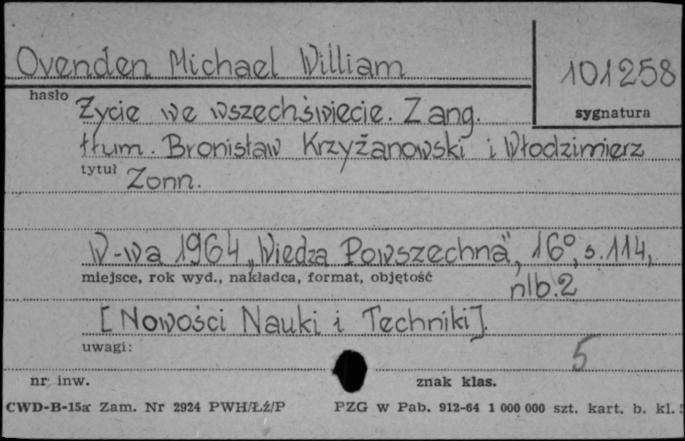 Ovenden Michael William
101258
hasło
sygnatura
Życie we wszechświecie. Z ang.
tłum. Bronisław Krzyżanowski i Włodzimierz
tytuł
Zonn.
W-wa 1964 „Wiedza Powszechna", 16°, s. 114,
miejsce, rok wyd., nakładca, format, objętość
nlb. 2
[Nowości Nauki i Techniki].
uwagi:
5
nr inw.
znak klas.
CWD-B-15a Zam. Nr 2924 PWH/Łź/P PZG w Pab. 912-64 1 000 000 szt. kart. b. kl.